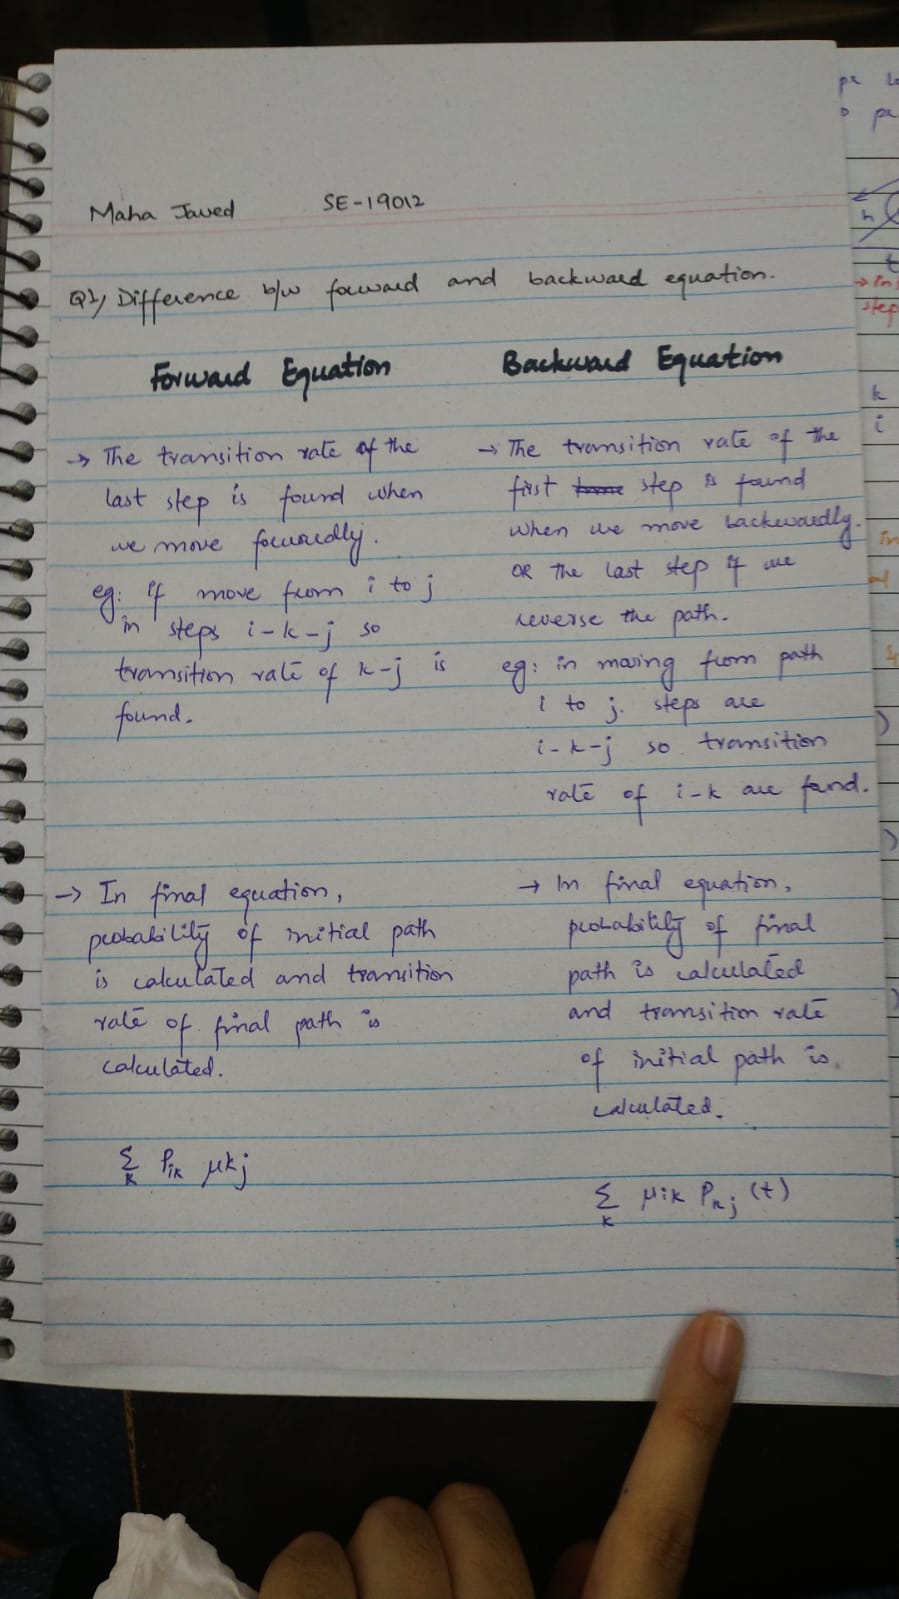 Maha Javed SE-19012
Q1, Difference b/w forward and backward equation.
Forward Equation
→ The transition rate of the
last step is found when
we move forwardly.
eg: if move from i to j
in steps i-k-j so
transition rate of k-j is
found.
→ In final equation,
probability of initial path
is calculated and transition
rate of final path is
calculated.
Σ Pik μkj
k
Backward Equation
→ The transition rate of the
first step is found
when we move backwardly.
OR the last step if we
reverse the path.
eg: in moving from path
i to j. steps are
i-k-j so transition
rate of i-k are found.
→ In final equation,
probability of final
path is calculated
and transition rate
of initial path is
calculated.
Σ μik Pkj (t)
k
k
i